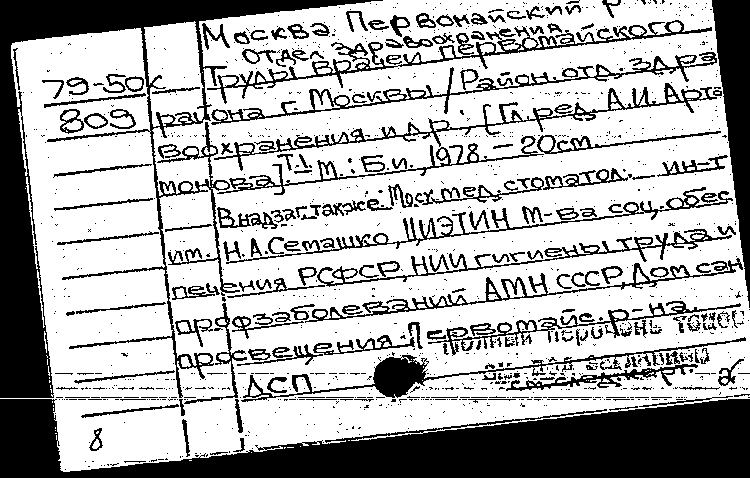 Москва. Первомайский р-н.
Отдел здравоохранения
79-50к Труды врачей Первомайского
809 района г. Москвы / Район. отд. здра
воохранения и др.; [Гл. ред. А.И. Арта
монова]. Т.1 - М.: Б.и., 1978. - 20см.
В надзаг. также: Моск. мед. стоматол. ин-т
им. Н.А. Семашко, ЦИЭТИН М-ва соц. обес
печения РСФСР, НИИ гигиены труда и
профзаболеваний АМН СССР, Дом сан
просвещения Первомайс. р-на.
Полный перечень томов
см. под заглавием
ДСП см. след. карт.
8